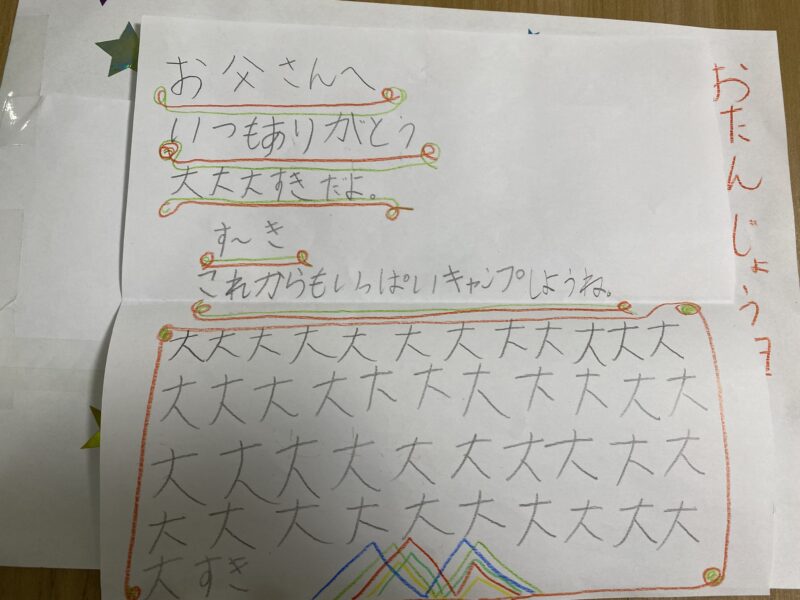 お父さんへ
いつもありがとう
大大大すきだよ。
す〜き
これからもいっぱいキャンプしようね。
大大大大大大大大大大大大
大大大大大大大大大大大
大大大大大大大大大大
大大大大大大大大大大
大すき
おたんじょう